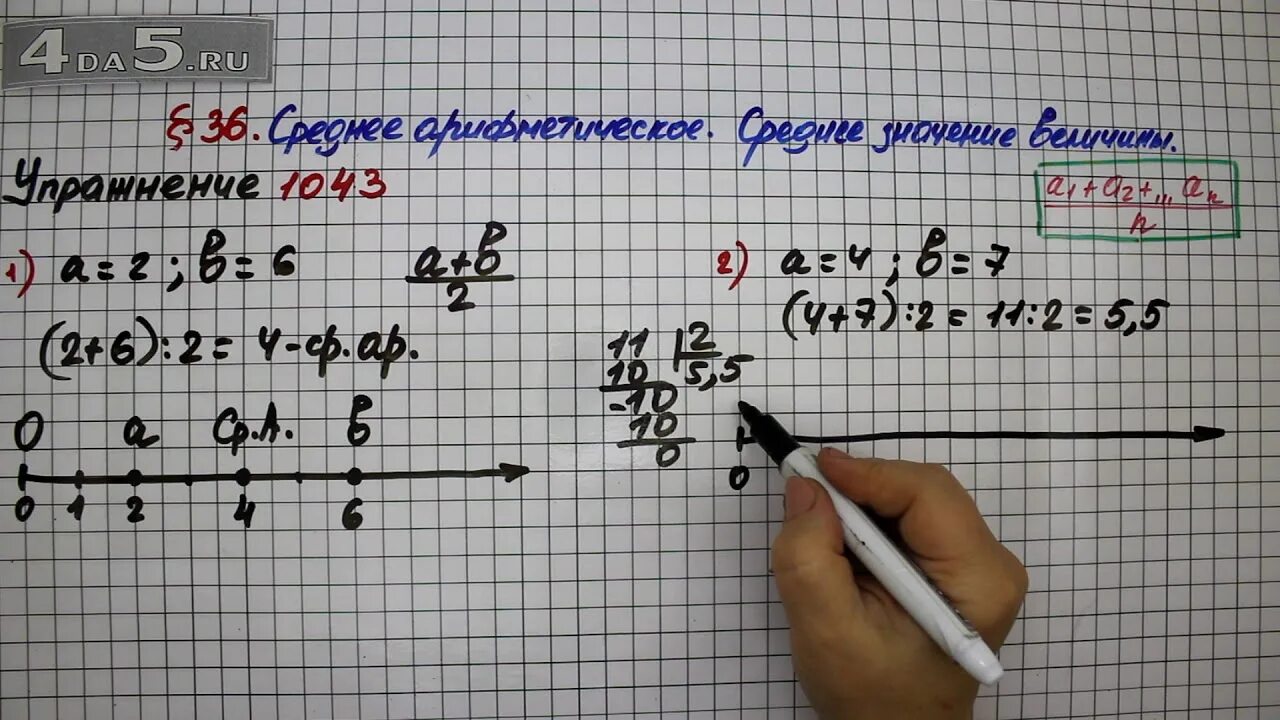 4DA5.RU
§ 36. Среднее арифметическое. Среднее значение величины.
Упражнение 1043
a₁+a₂+...aₙ
n
1) a=2; в=6
a+в
2
(2+6):2= 4-ср.ар.
0 a Ср.А. в
0 1 2 4 6
2) a=4; в=7
(4+7):2= 11:2=5,5
11 2
10 5,5
-10
10
0
0